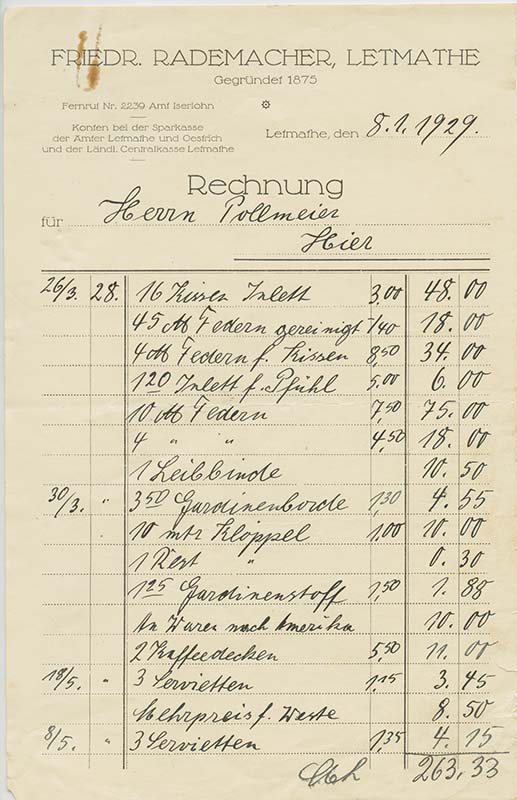 FRIEDR. RADEMACHER, LETMATHE
Gegründet 1875
Fernruf Nr. 2239 Amt Iserlohn
Konten bei der Sparkasse
der Ämter Letmathe und Oestrich
und der Ländl. Centralkasse Letmathe
Letmathe, den 8.1.1929.
Rechnung
für Herrn Pollmeier
Hier
26/3. 28. 16 Kissen Inlett 3,00 48.00
45 Federn gereinigt -,40 18.00
4 Federn f. Kissen 8,50 34.00
120 Inlett f. Pfühl 5,00 6.00
10 Federn 7,50 75.00
4 " " 4,50 18.00
1 Leibbinde 10.50
30/3. " 3 50 Gardinenborde 1,30 4.55
10 mtr Klöppel 1,00 10.00
1 Rest " 0.30
1 25 Gardinenstoff 1,50 1.88
An Waren nach Amerika 10.00
2 Kaffeedecken 5,50 11.00
18/5. " 3 Servietten 1,15 3.45
Mehrpreis f. Weste 8.50
8/5. " 3 Servietten 1,35 4.15
263,33